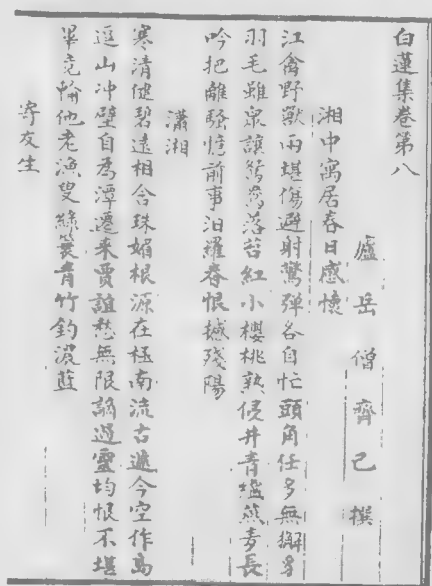 白蓮集卷第八
廬岳僧齊己撰
湘中寓居春日感懷
江禽野獸兩堪傷避射驚彈各自忙頭角任多無獬豸
羽毛雖衆讓鴛鴦落苔紅小櫻桃熟侵井青纖燕麥長
吟把離騷憶前事汨羅春恨撼殘陽
瀟湘
寒清健碧遠相含珠媚根源在極南流古遞今空作島
逗山冲壁自為潭遷來賈誼愁無限謫過靈均恨不堪
畢竟輸他老漁叟綠蓑青竹釣濃藍
寄友生